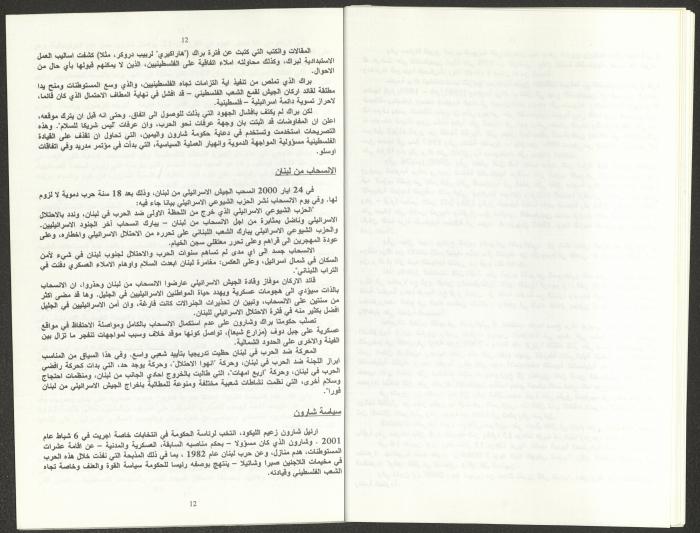 12
المقالات والكتب التي كتبت عن فترة براك ("هاراكيري" لربيب دروكر، مثلا) كشفت اساليب العمل
الاستبدادية لبراك، وكذلك محاولته املاء اتفاقية على الفلسطينيين، الذين لا يمكنهم قبولها بأي حال من
الاحوال.
براك الذي تملص من تنفيذ اية التزامات تجاه الفلسطينيين، والذي وسع المستوطنات ومنح يدا
مطلقة لقائد اركان الجيش لقمع الشعب الفلسطيني – قد افشل في نهاية المطاف الاحتمال الذي كان قائما،
لاحراز تسوية دائمة اسرائيلية – فلسطينية.
لكن براك لم يكتف بافشال الجهود التي بذلت للوصول الى اتفاق. وحتى انه قبل ان يترك موقعه،
اعلن ان المفاوضات قد اثبتت بان وجهة عرفات نحو الحرب، وان عرفات "ليس شريكا للسلام". وهذه
التصريحات استخدمت وتستخدم في دعاية حكومة شارون واليمين، التي تحاول ان تقذف على القيادة
الفلسطينية مسؤولية المواجهة الدموية وانهيار العملية السياسية، التي بدأت في مؤتمر مدريد وفي اتفاقات
اوسلو.
الانسحاب من لبنان
في 24 ايار 2000 انسحب الجيش الاسرائيلي من لبنان، وذلك بعد 18 سنة حرب دموية لا لزوم
لها. وفي يوم الانسحاب نشر الحزب الشيوعي الاسرائيلي بيانا جاء فيه:
"الحزب الشيوعي الاسرائيلي الذي خرج من اللحظة الاولى ضد الحرب في لبنان، وندد بالاحتلال
الاسرائيلي وناضل بمثابرة من اجل الانسحاب من لبنان – يبارك انسحاب آخر الجنود الاسرائيليين.
والحزب الشيوعي الاسرائيلي يبارك الشعب اللبناني على تحرره من الاحتلال الاسرائيلي واخطاره، وعلى
عودة المهجرين الى قراهم وعلى تحرر معتقلي سجن الخيام.
الانسحاب جسد الى اي مدى لم تساهم سنوات الحرب والاحتلال لجنوب لبنان في شيء لأمن
السكان في شمال اسرائيل، وعلى العكس: مغامرة لبنان ابعدت السلام واوهام الاملاء العسكري دفنت في
التراب اللبناني".
قائد الاركان موفاز وقادة الجيش الاسرائيلي عارضوا الانسحاب من لبنان وحذروا، ان الانسحاب
بالذات سيؤدي الى هجومات عسكرية ويهدد حياة المواطنين الاسرائيليين في الجليل. وها قد مضى اكثر
من سنتين على الانسحاب، وتبين ان تحذيرات الجنرالات كانت فارغة، وان أمن الاسرائيليين في الجليل
افضل بكثير منه في فترة الاحتلال الاسرائيلي للبنان.
تصلب حكومتا براك وشارون على عدم استكمال الانسحاب بالكامل ومواصلة الاحتفاظ في مواقع
عسكرية على جبل دوف (مزارع شبعا)، تواصل كونها موقد خلاف وسبب لمواجهات تتفجر ما تزال بين
الفينة والاخرى على الحدود الشمالية.
المعركة ضد الحرب في لبنان حظيت تدريجيا بتأييد شعبي واسع. وفي هذا السياق من المناسب
ابراز اللجنة ضد الحرب في لبنان، وحركة "انهوا الاحتلال"، وحركة يوجد حد، التي بدأت كحركة رافضي
الحرب في لبنان، وحركة "اربع امهات"، التي طالبت بالخروج احادي الجانب من لبنان، ومنظمات احتجاج
وسلام أخرى، التي نظمت نشاطات شعبية مختلفة ومنوعة للمطالبة باخراج الجيش الاسرائيلي من لبنان
فورا".
سياسة شارون
ارئيل شارون زعيم الليكود، انتخب لرئاسة الحكومة في انتخابات خاصة اجريت في 6 شباط عام
2001 . وشارون الذي كان مسؤولا – بحكم مناصبه السابقة، العسكرية والمدنية – عن اقامة عشرات
المستوطنات، هدم منازل، وعن حرب لبنان عام 1982 ، بما في ذلك المذبحة التي نفذت خلال هذه الحرب
في مخيمات اللاجئين صبرا وشاتيلا – ينتهج بوصفه رئيسا للحكومة سياسة القوة والعنف وخاصة تجاه
الشعب الفلسطيني وقيادته.
12